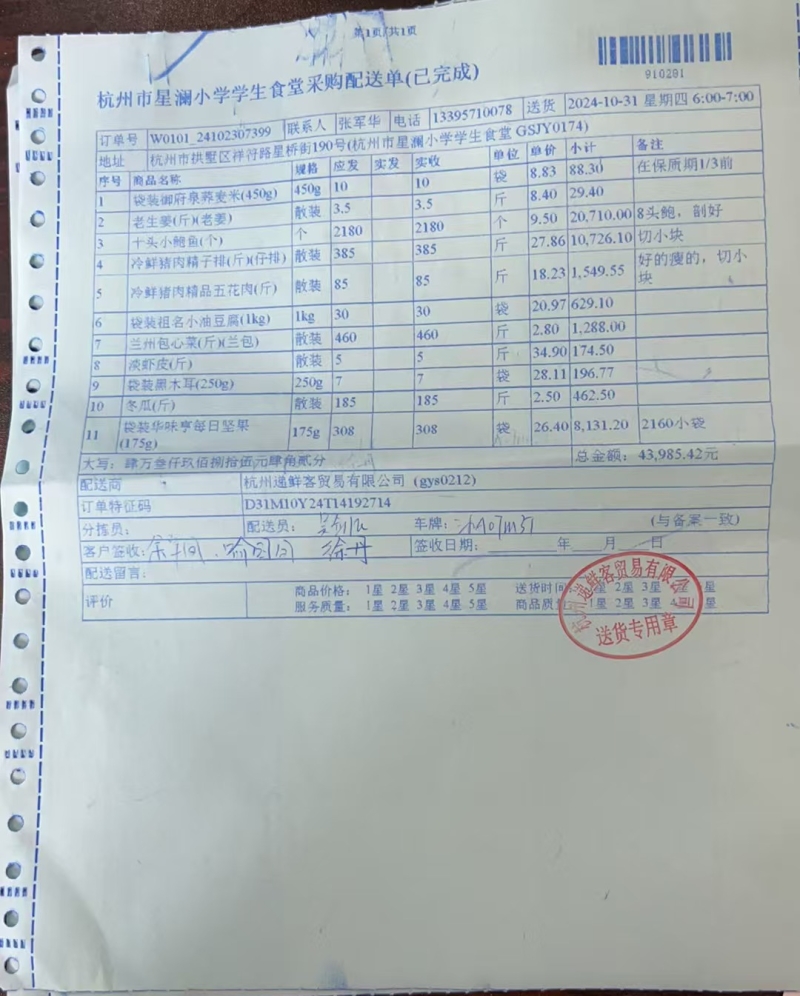 第1页/共1页
910291
杭州市星澜小学学生食堂采购配送单(已完成)
订单号 W0101_24102307399 联系人 张军华 电话 13395710078 送货 2024-10-31 星期四 6:00-7:00
地址 杭州市拱墅区祥符路星桥街190号(杭州市星澜小学学生食堂 GSJY0174)
序号 商品名称 规格 应发 实发 实收 单位 单价 小计 备注
1 袋装御府泉荞麦米(450g) 450g 10 10 袋 8.83 88.30 在保质期1/3前
2 老生姜(斤)(老姜) 散装 3.5 3.5 斤 8.40 29.40
3 十头小鲍鱼(个) 个 2180 2180 个 9.50 20,710.00 8头鲍，剖好
4 冷鲜猪肉精子排(斤)(仔排) 散装 385 385 斤 27.86 10,726.10 切小块
5 冷鲜猪肉精品五花肉(斤) 散装 85 85 斤 18.23 1,549.55 好的瘦的，切小块
6 袋装祖名小油豆腐(1kg) 1kg 30 30 袋 20.97 629.10
7 兰州包心菜(斤)(兰包) 散装 460 460 斤 2.80 1,288.00
8 淡虾皮(斤) 散装 5 5 斤 34.90 174.50
9 袋装黑木耳(250g) 250g 7 7 袋 28.11 196.77
10 冬瓜(斤) 散装 185 185 斤 2.50 462.50
11 袋装华味亨每日坚果(175g) 175g 308 308 袋 26.40 8,131.20 2160小袋
大写：肆万叁仟玖佰捌拾伍元肆角贰分 总金额：43,985.42元
配送商 杭州递鲜客贸易有限公司（gys0212)
订单特征码 D31M10Y24T14192714
分拣员： 配送员： 车牌： (与备案一致)
客户签收： 徐丹 签收日期： 年 月 日
配送留言：
评价 商品价格： 1星 2星 3星 4星 5星 送货时间 星 2星 3星 4星 星
服务质量： 1星 2星 3星 4星 5星 商品质 1星 2星 3星 4 星
杭州递鲜客贸易有限公司
送货专用章